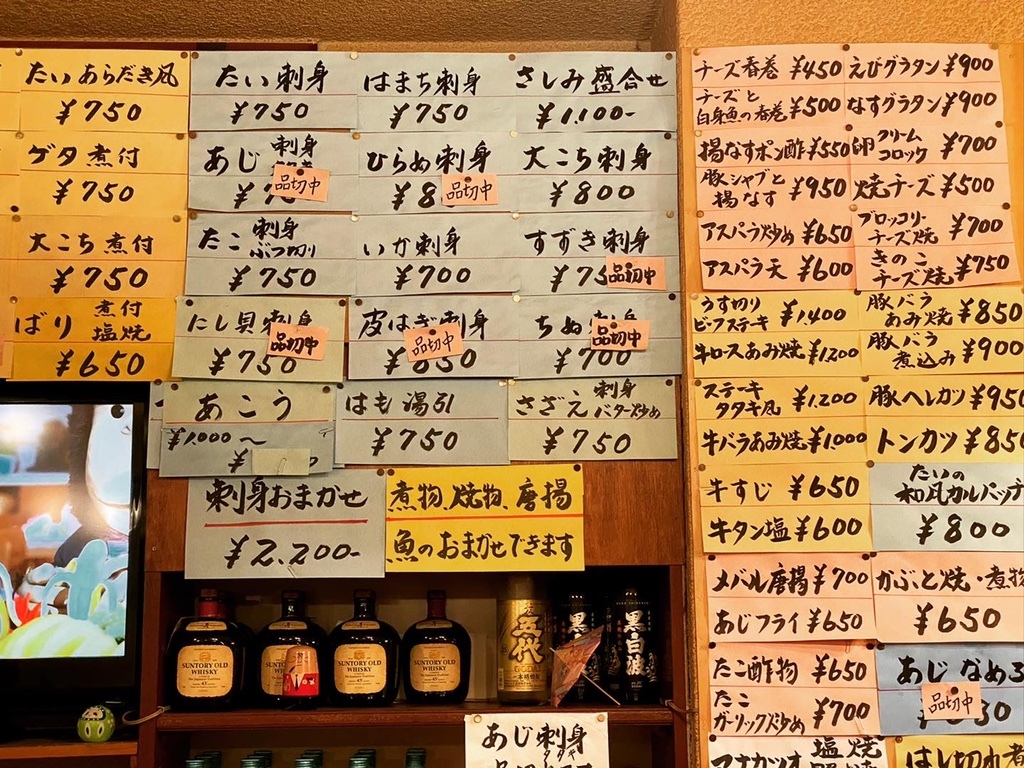 たいあらだき風
¥750
ゲタ煮付
¥750
大こち煮付
¥750
ばり 煮付 塩焼
¥650
たい刺身
¥750
はまち刺身
¥750
さしみ盛合せ
¥1,100-
あじ刺身
品切中
ひらめ刺身
¥8
品切中
大こち刺身
¥800
たこ 刺身 ぶつ切り
¥750
いか刺身
¥700
すずき刺身
¥75
品切中
にし貝刺身
¥750
品切中
皮はぎ刺身
¥850
品切中
ちぬ刺身
¥700
品切中
あこう
¥1,000〜
¥
はも湯引
¥750
さざえ 刺身 バター炒め
¥750
刺身おまかせ
¥2,200-
煮物、焼物、唐揚
魚のおまかせできます
SUNTORY OLD
WHISKY
SUNTORY OLD
WHISKY
SUNTORY OLD
WHISKY
五代
黒白波
あじ刺身
チーズ香巻 ¥450
チーズと白身魚の香巻 ¥500
揚なすポン酢 ¥550
豚シャブと揚なす ¥950
アスパラ炒め ¥650
アスパラ天 ¥600
えびグラタン ¥900
なすグラタン ¥900
卵クリームコロッケ ¥700
焼チーズ ¥500
ブロッコリーチーズ焼 ¥700
きのこチーズ焼 ¥750
うす切りビーフステーキ ¥1,400
牛ロースあみ焼 ¥1,200
豚バラあみ焼 ¥850
豚バラ煮込み ¥900
ステーキタタキ風 ¥1,200
牛バラあみ焼 ¥1,000
豚ヘレカツ ¥950
トンカツ ¥850
牛すじ ¥650
牛タン塩 ¥600
たいの和風カルパッチ
¥800
メバル唐揚 ¥700
あじフライ ¥650
かぶと焼・煮物
¥650
たこ酢物 ¥650
たこガーリック炒め ¥700
あじなめろ
品切中
マナガツオ 塩焼
はし切れ煮